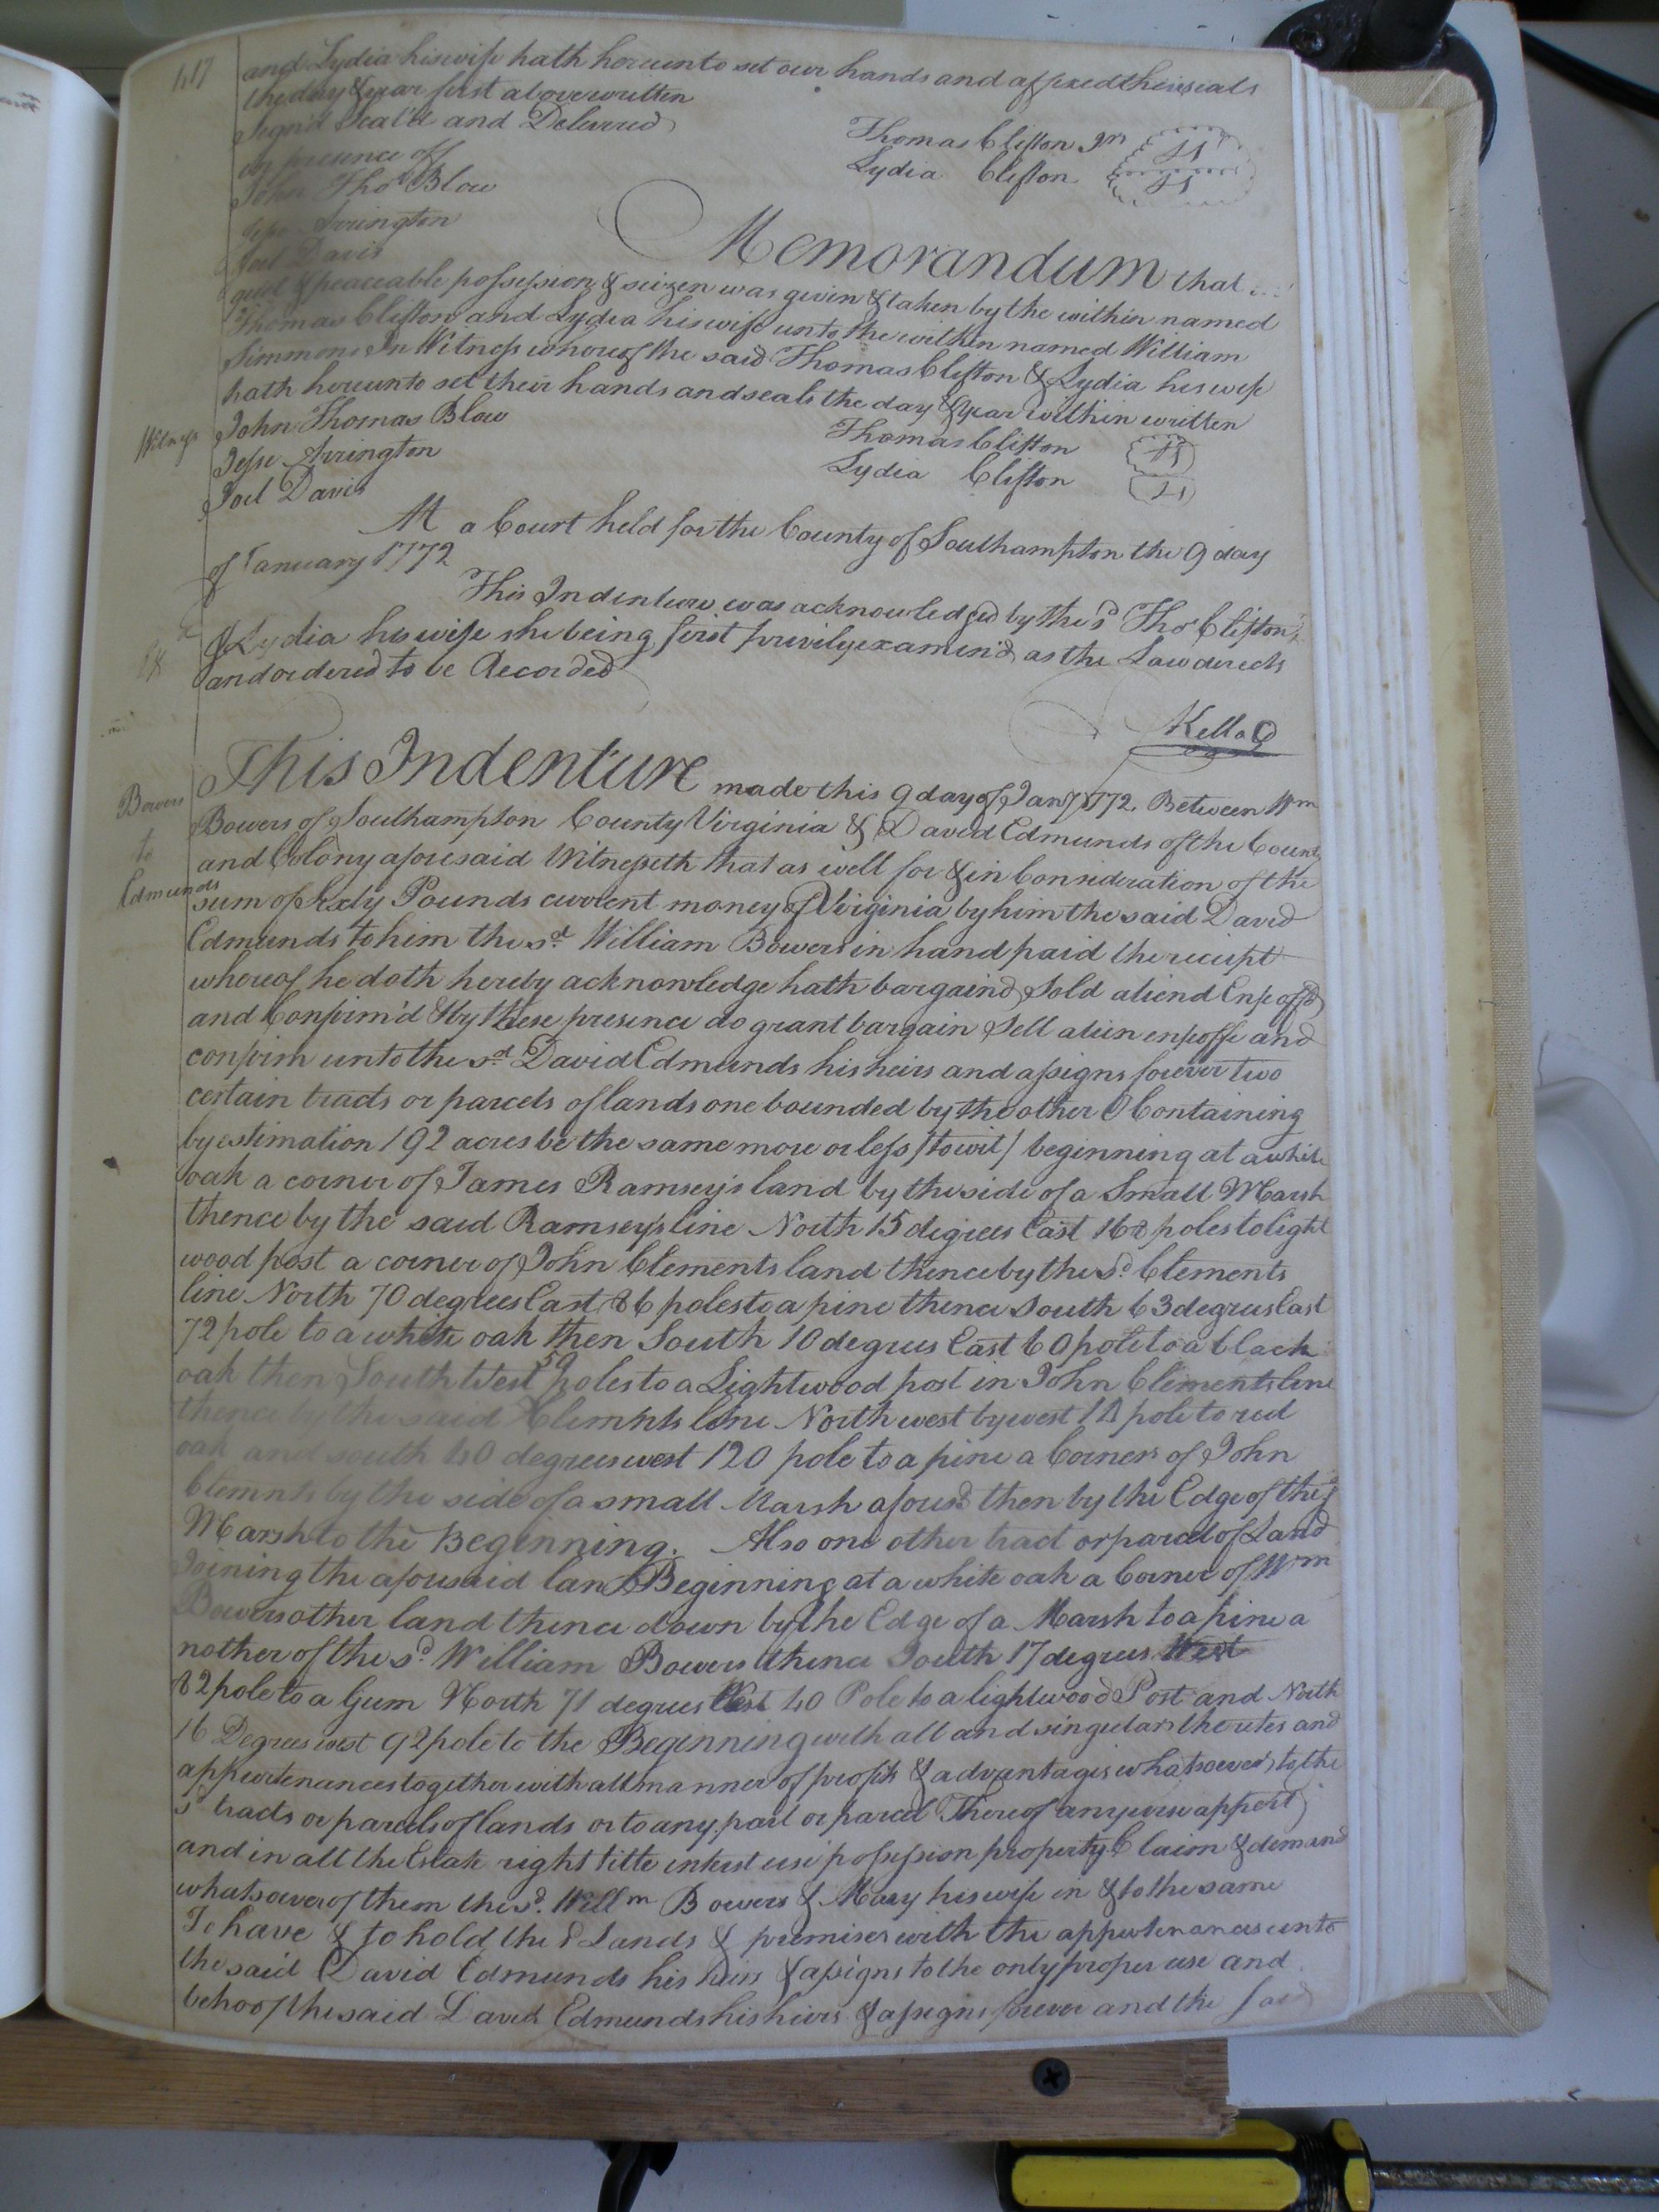 417
and Lydia his wife hath hereunto set our hands and affixed their seals
the day & year first above written
Sign'd Seal'd and Delivered
in presence of
Thomas Clifton Jnr LS
Lydia Clifton LS
John Thos Blow
Jesse Arrington
Joel Davis
Memorandum that
quiet & peaceable possession & seizen was given & taken by the within named
Thomas Clifton and Lydia his wife unto the within named William
Simmons In Witness whereof the said Thomas Clifton & Lydia his wife
hath hereunto set their hands and seals the day & year within written
Witness John Thomas Blow
Thomas Clifton LS
Jesse Arrington
Lydia Clifton LS
Joel Davis
At a Court held for the County of Southampton the 9 day
of January 1772
This Indenture was acknowledged by the sd Thos Clifton
& Lydia his wife she being first privily examin'd as the Law directs
and ordered to be Recorded
Ex
Bowers
to
Edmunds
This Indenture made this 9 day of Jany 1772. Between Wm
Bowers of Southampton County Virginia & David Edmunds of the County
and Colony aforesaid Witnesseth that as well for & in Consideration of the
sum of Sixty Pounds current money of Virginia by him the said David
Edmunds to him the sd William Bowers in hand paid the receipt
whereof he doth hereby acknowledge hath bargaind Sold aliend Enfeoffd
and Confirm'd & by these presence do grant bargain Sell alien enfeoffe and
confirm unto the sd David Edmunds his heirs and assigns forever two
certain tracts or parcels of lands one bounded by the other Containing
by estimation 192 acres be the same more or less /to wit/ beginning at a white
oak a corner of James Ramsey's land by the side of a Small Marsh
thence by the said Ramsey's line North 15 degrees East 168 poles to light
wood post a corner of John Clements land thence by the sd Clements
line North 70 degrees East 86 poles to a pine thence South 63 degrees East
72 pole to a white oak then South 10 degrees East 60 pole to a black
oak then South West 59 poles to a Lightwood post in John Clements line
thence by the said Clemnts line North west by west 18 pole to red
oak and south 40 degrees west 120 pole to a pine a Corner of John
Clemnts by the side of a small Marsh aforesd then by the Edge of the sd
Marsh to the Beginning. Also one other tract or parcel of Land
Joining the aforesaid land Beginning at a white oak a Corner of Wm
Bowers other land thence down by the Edge of a Marsh to a pine a
nother of the sd William Bowers thence South 17 degrees West
82 pole to a Gum North 71 degrees West 40 Pole to a lightwood Post and North
16 Degrees west 92 pole to the Beginning with all and singular the utes and
appurtenances together with all manner of profits & advantages whatsoever to the
sd tracts or parcels of lands or to any part or parcel Thereof anywise appert
and in all the Estate right title interest use possession property Claim & demand
whatsoever of them the sd Willm Bowers & Mary his wife in & to the same
To have & to hold the sd Lands & premises with the appurtenances unto
the said David Edmunds his heirs & assigns to the only proper use and
behoof the said David Edmunds his heirs & assigns forever and the said